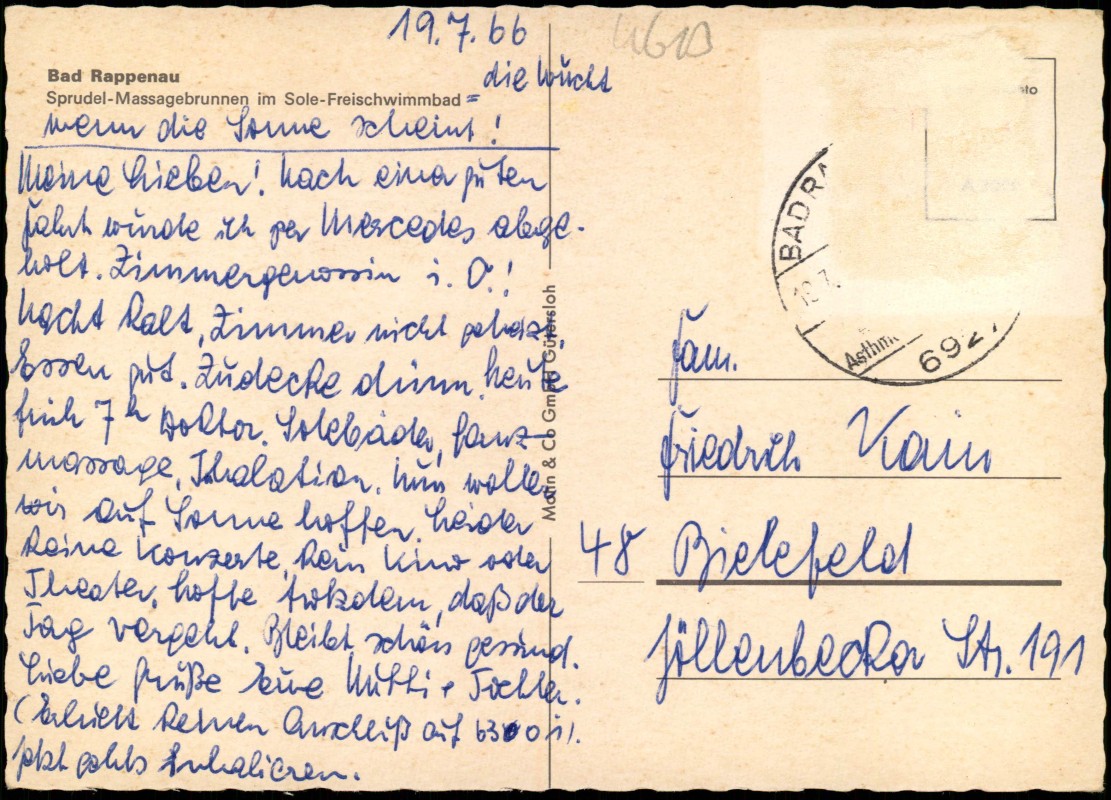 19.7.66
4613
Bad Rappenau
Sprudel-Massagebrunnen im Sole-Freischwimmbad = die Wucht
wenn die Sonne scheint!
Meine Lieben! Nach einer guten
Fahrt wurde ich per Mercedes abge-
holt. Zimmergenossin i. O.!
Nacht kalt, Zimmer nicht geheizt,
Essen gut. Zudecke dünn. Heute
früh 7h Doktor. Solebäder, Ganz-
massage, Inhalation. Nun wollen
wir auf Sonne hoffen. Leider
keine Konzerte, kein Kino oder
Theater, hoffe trotzdem, daß der
Tag vergeht. Bleibt schön gesund.
Liebe Grüße Eure Mutti + Tochter.
(Erhielt keinen Anschluß auf 6300
jetzt gehts Inhalieren.
Mohn & Co GmbH Gütersloh
BAD RA
19.7.
Asthm
692
Fam.
Friedrich Kain
48 Bielefeld
Jöllenbecker Str. 191